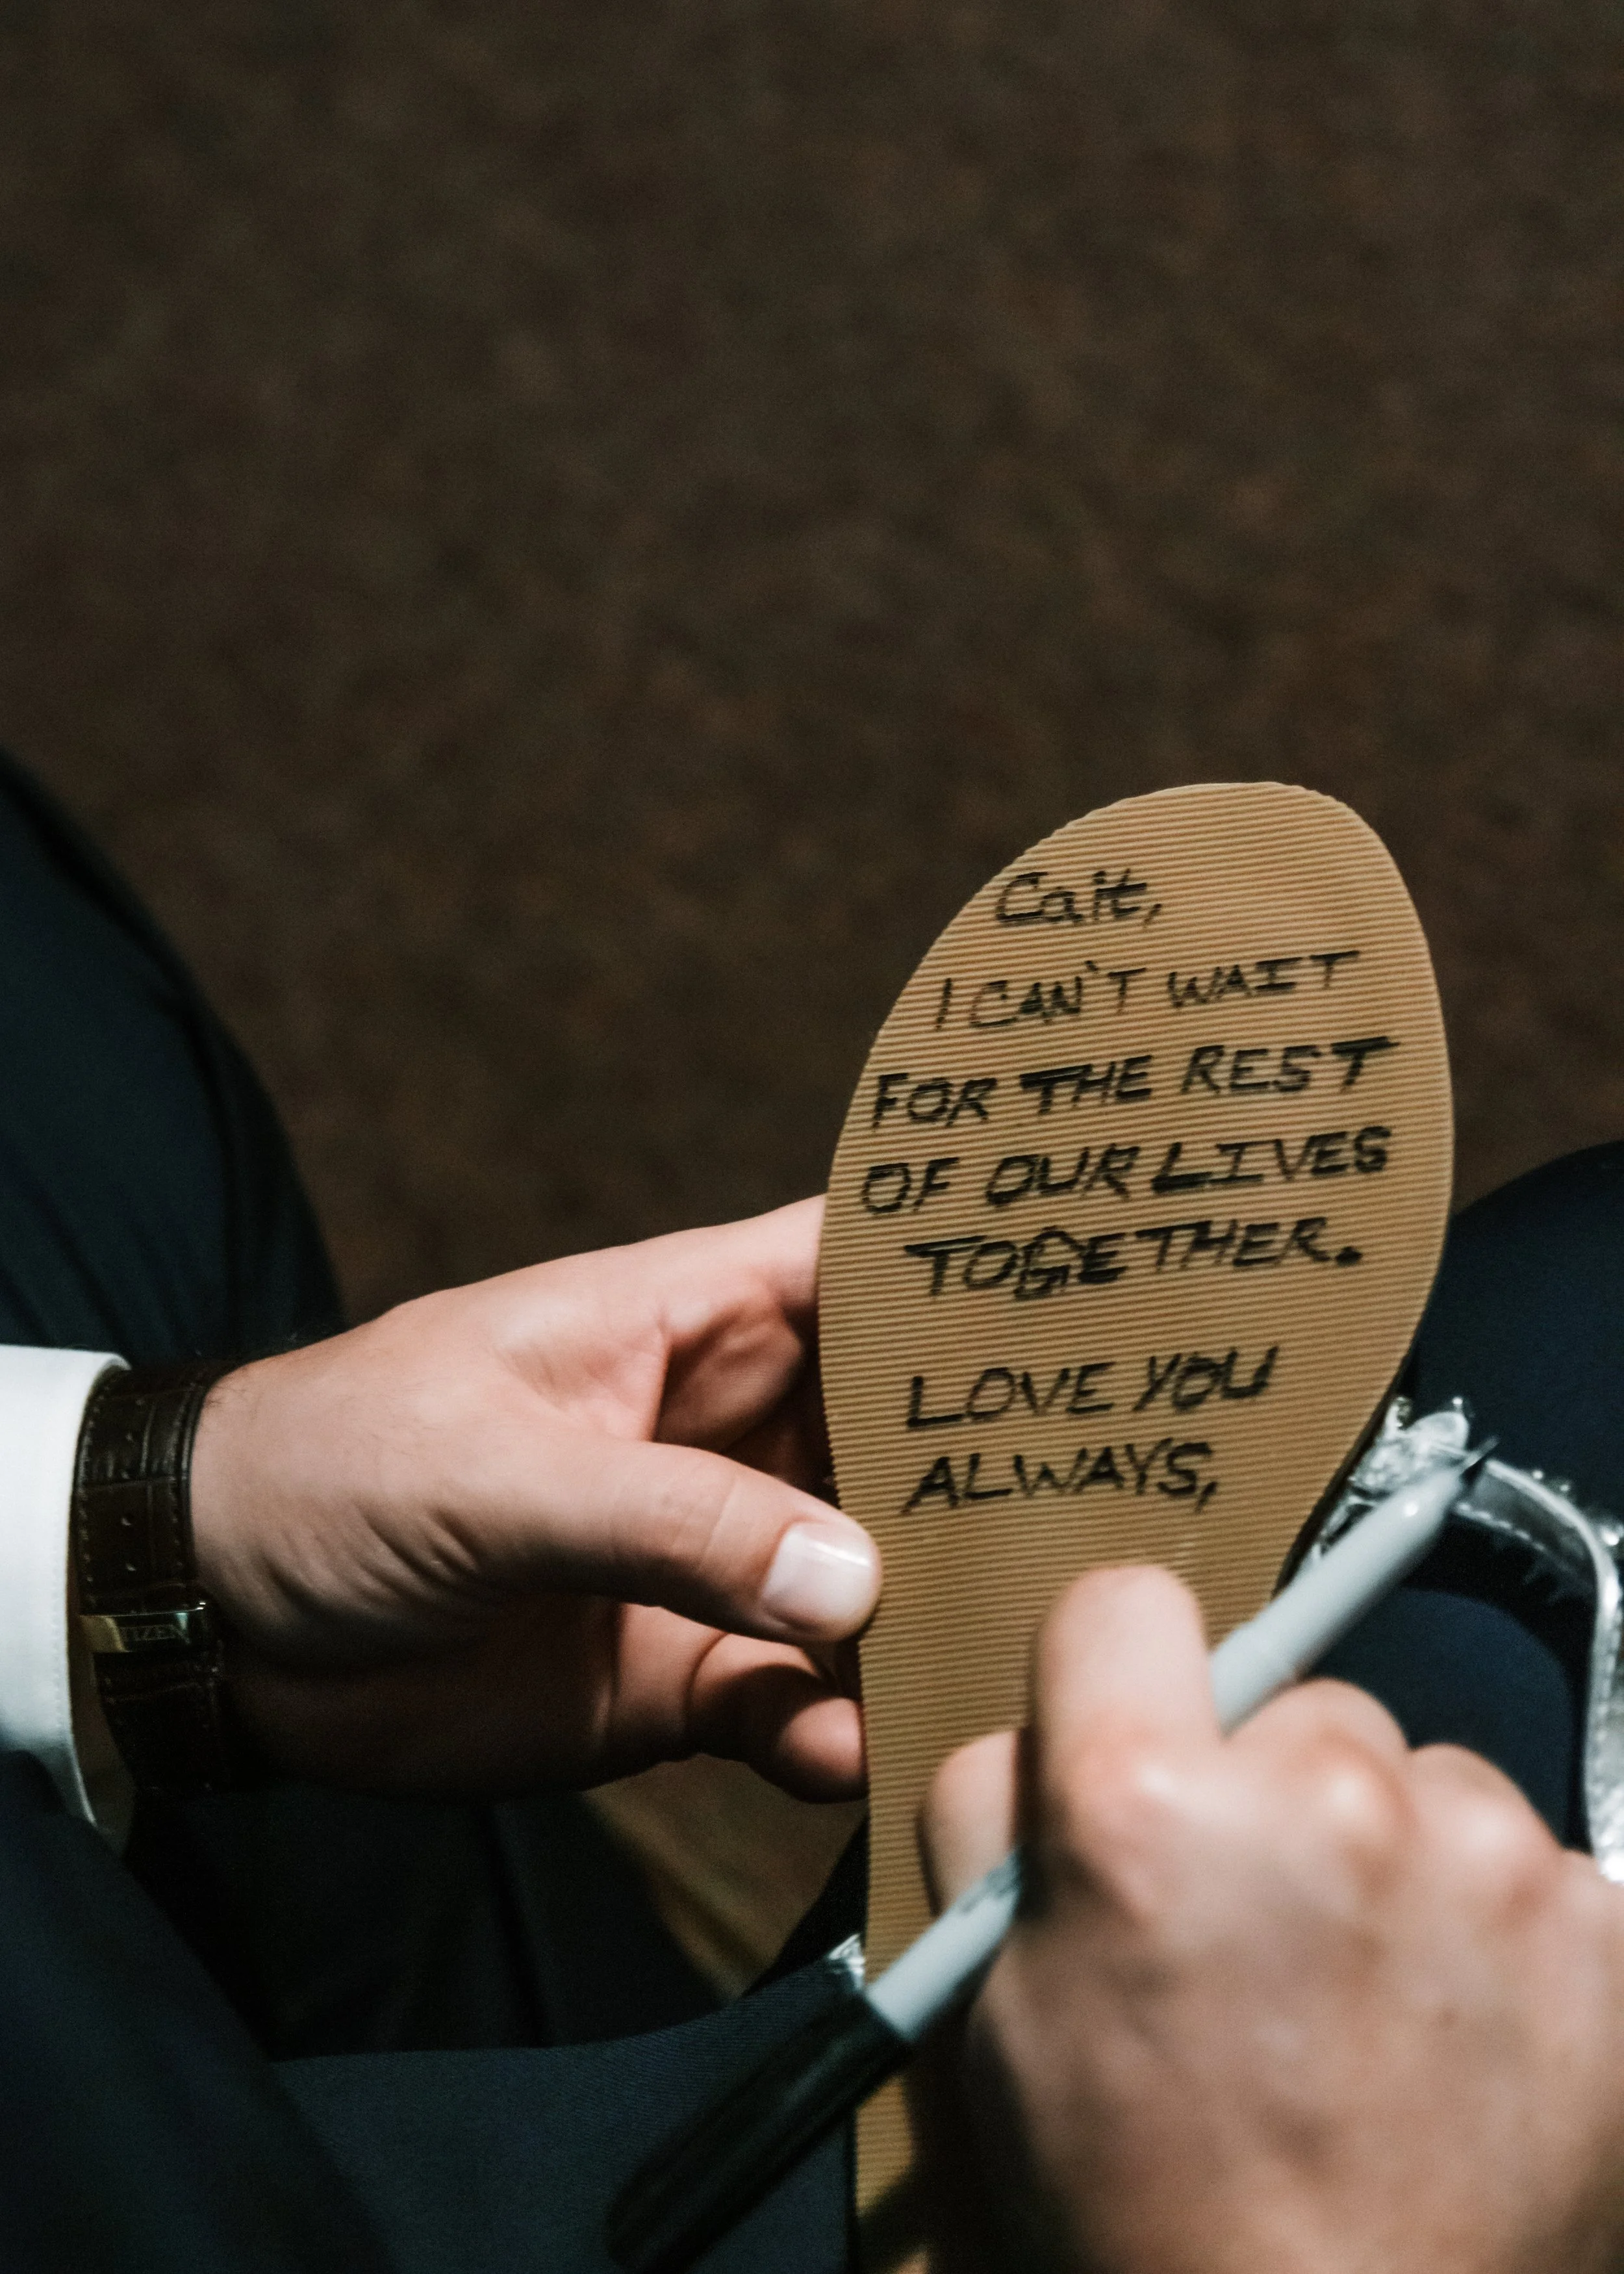 Cait,
I CAN'T WAIT
FOR THE REST
OF OUR LIVES
TOGETHER.
LOVE YOU
ALWAYS,